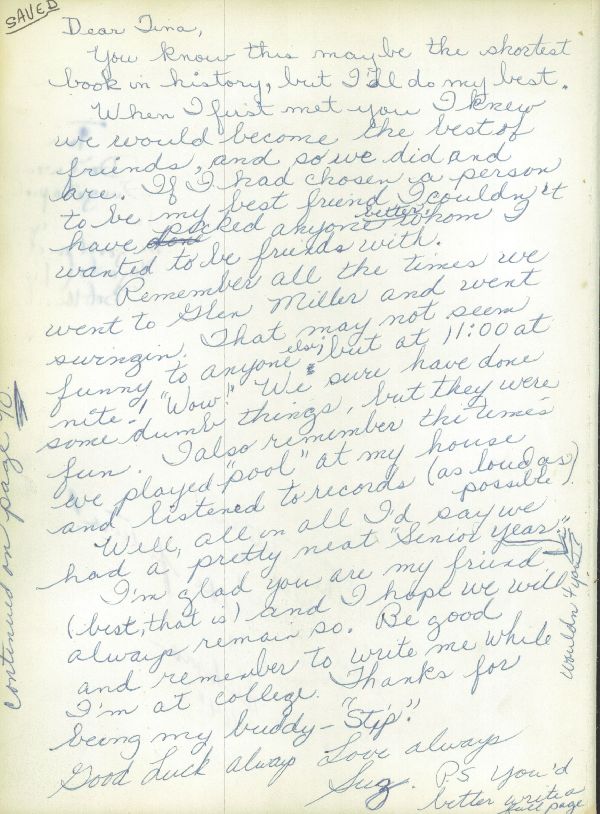 SAVED
Dear Tina,
You know this maybe the shortest
book in history, but I'll do my best.
When I fust met you I knew
we would become the best of
friends, and so we did and
are. If I had chosen a person
to be my best friend I couldn't
have done picked anyone better whom I
wanted to be friends with.
Remember all the times we
went to Glen Miller and went
swingin. That may not seem
funny to anyone else, but at 11:00 at
nite-! "Wow!" We sure have done
some dumb things, but they were
fun. I also remember the times
we played "pool" at my house
and listened to records (as loud as
possible).
Well, all in all I'd say we
had a pretty neat "Senior Year."
I'm glad you are my friend
(best, that is) and I hope we will
always remain so. Be good
and remember to write me while
I'm at college. Thanks for
being my buddy - "Stip".
Good Luck always Love always
Suz. P.S. You'd
better write a
full page
continued on page 90.
wouldn't you